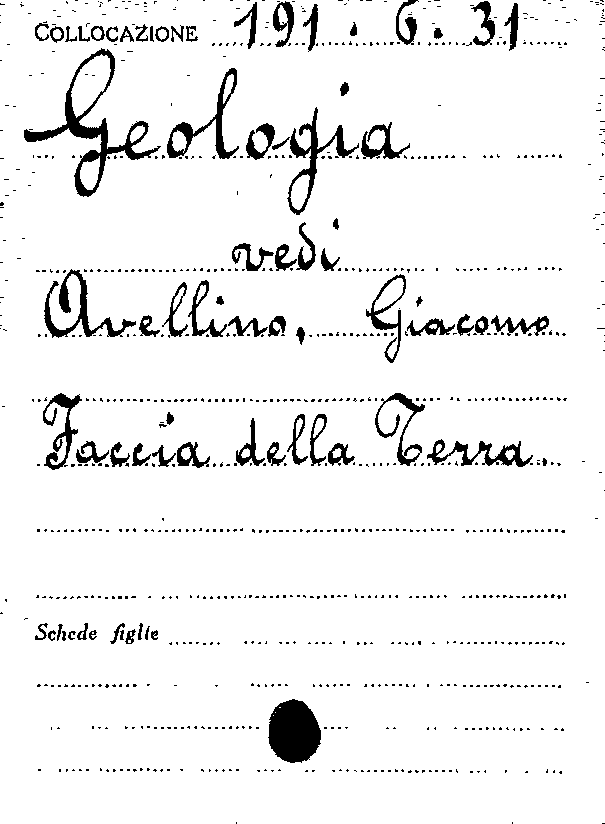 COLLOCAZIONE 191 . 6 . 31
Geologia
vedi
Avellino, Giacomo
Faccia della Terra.
Schede figlie